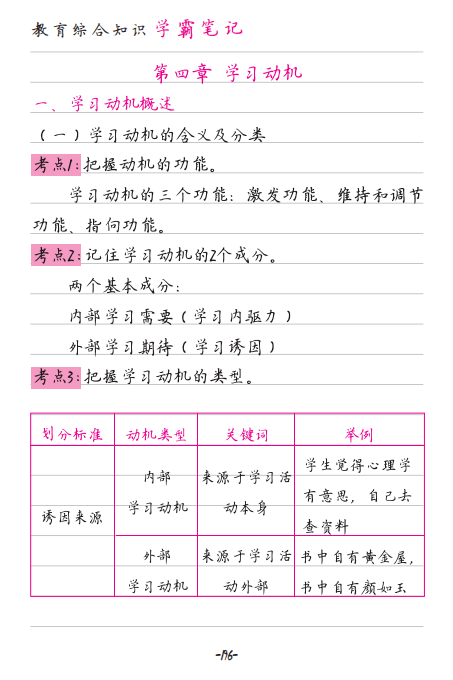 教育综合知识 学霸笔记
第四章 学习动机
一、学习动机概述
（一）学习动机的含义及分类
考点1：把握动机的功能。
学习动机的三个功能：激发功能、维持和调节
功能、指向功能。
考点2：记住学习动机的2个成分。
两个基本成分：
内部学习需要（学习内驱力）
外部学习期待（学习诱因）
考点3：把握学习动机的类型。
划分标准 动机类型 关键词 举例
诱因来源
内部
学习动机
来源于学习活
动本身
学生觉得心理学
有意思，自己去
查资料
外部
学习动机
来源于学习活
动外部
书中自有黄金屋，
书中自有颜如玉
-196-